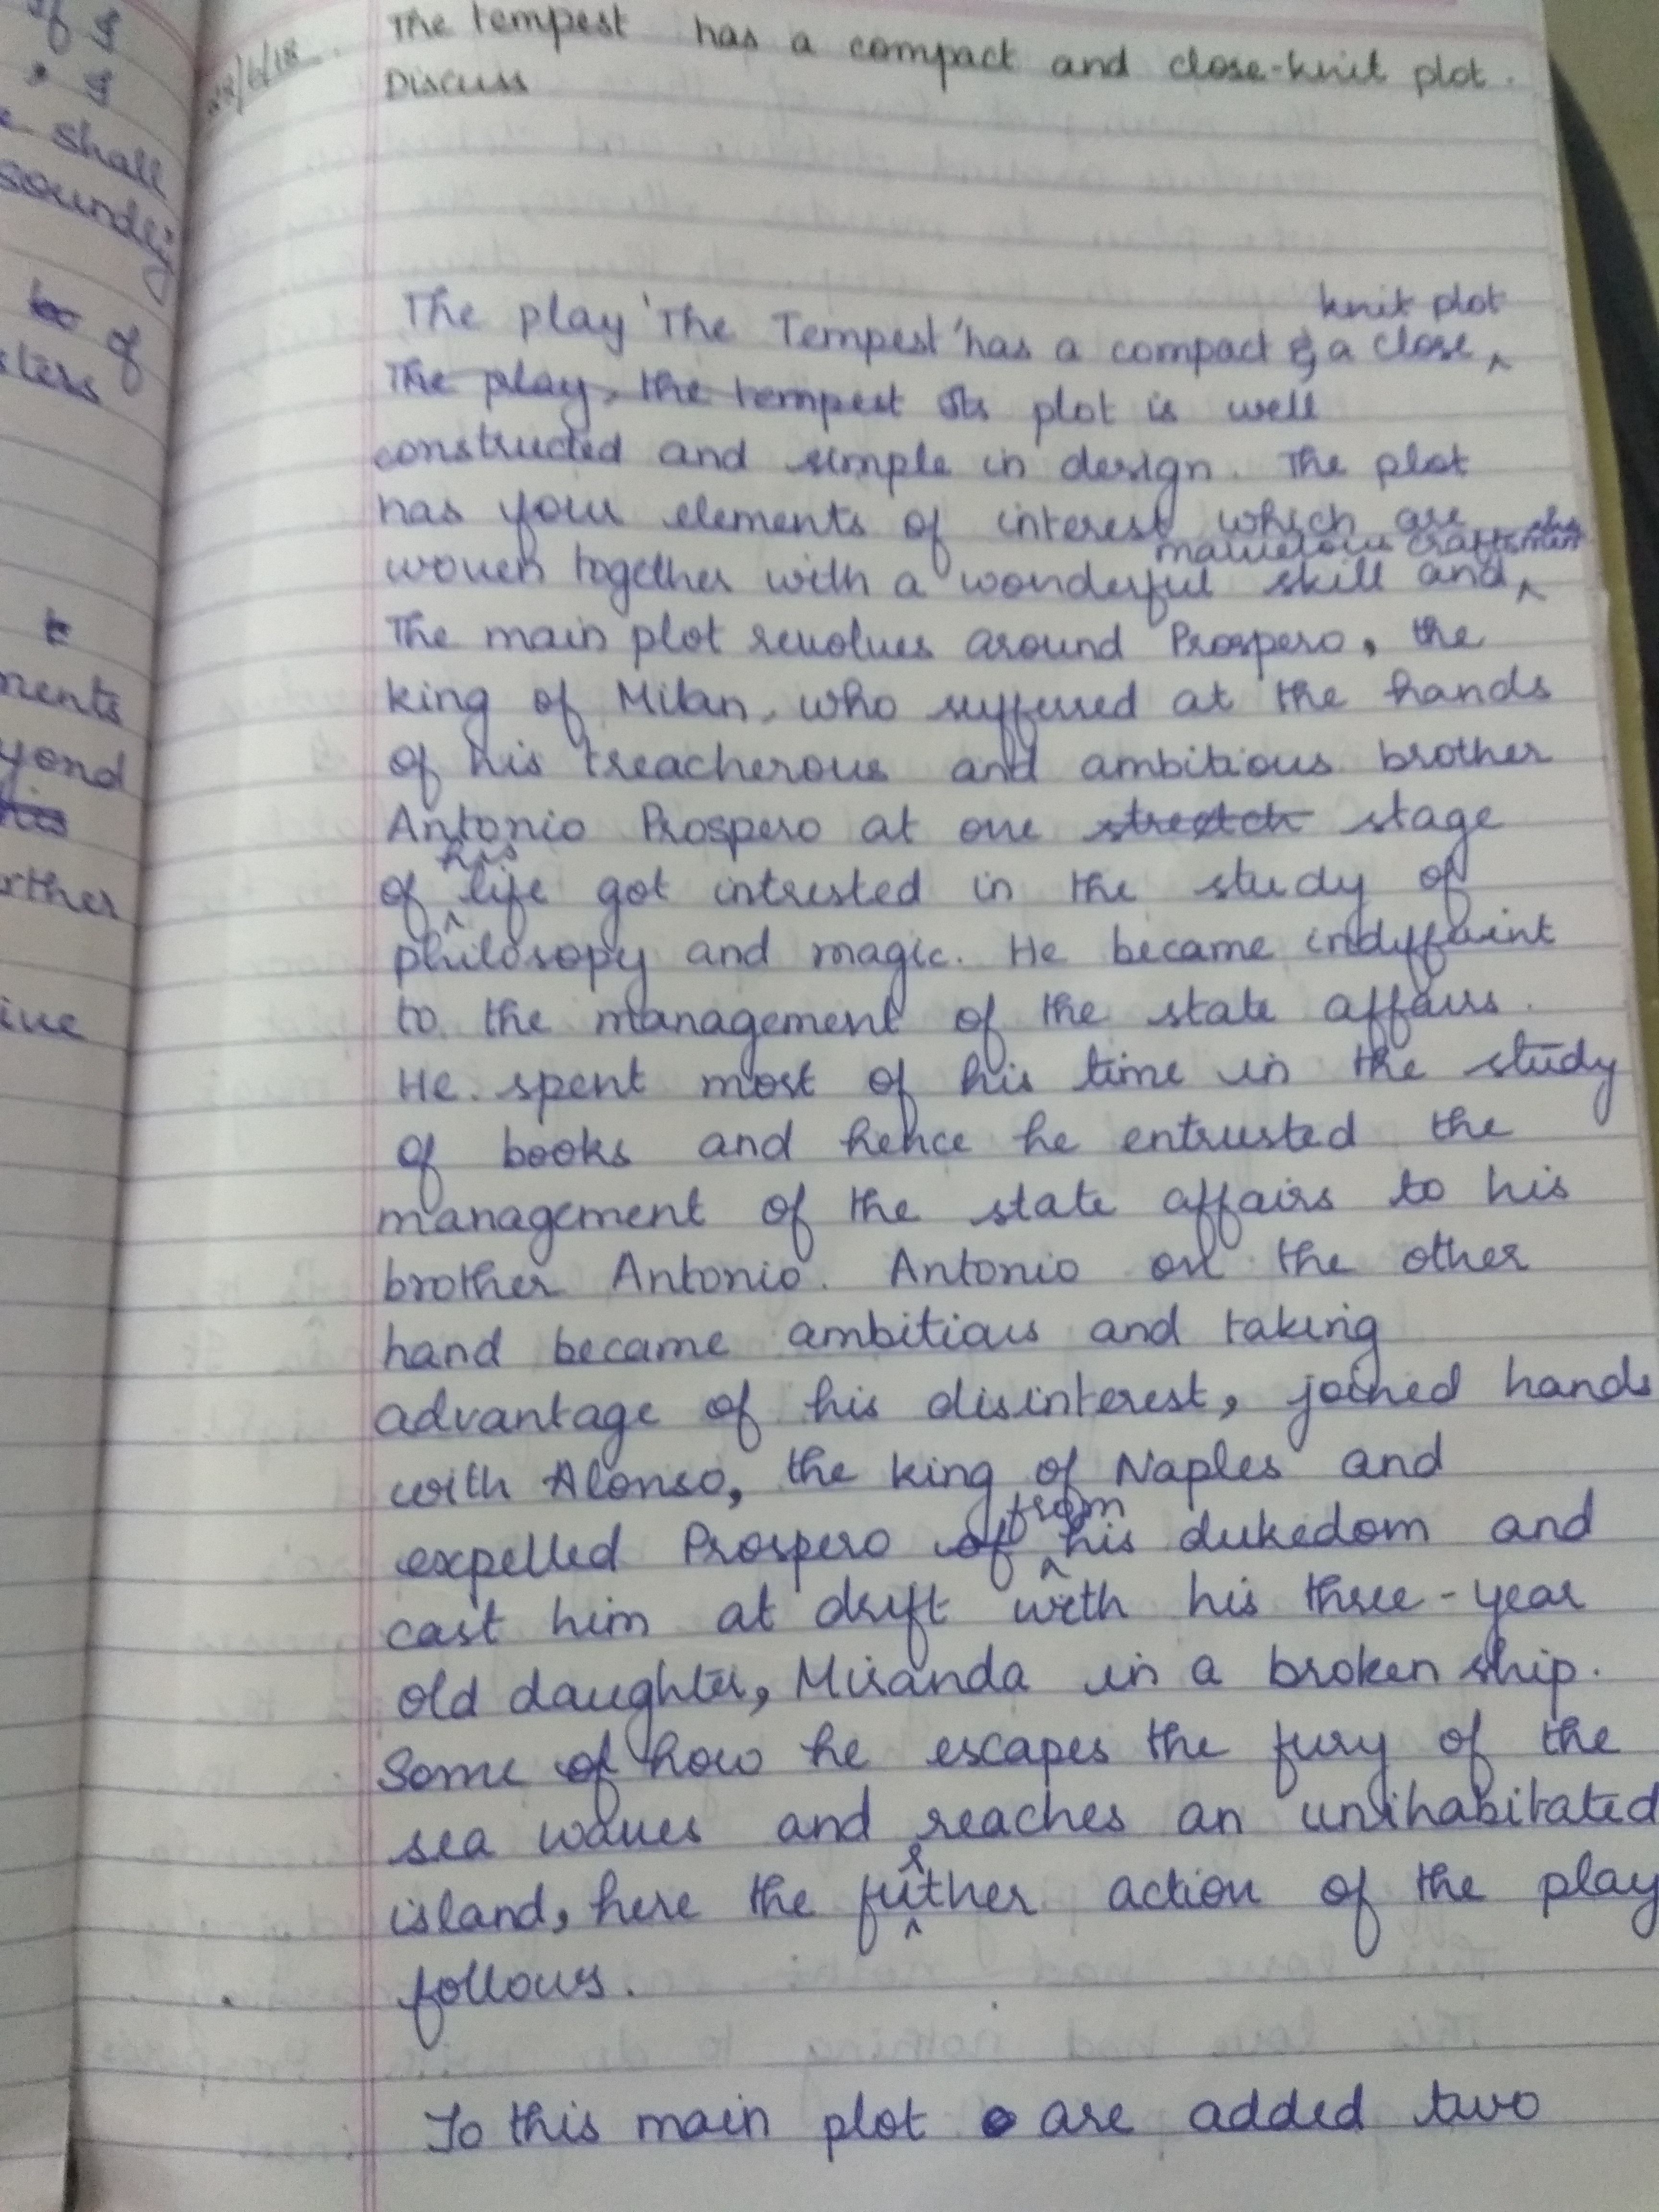 If I
, I
shall
soundly
of
ment
yond
rther
ive
28/6/18. The tempest has a compact and close-knit plot.
Discuss
The play 'The Tempest' has a compact & a close knit plot
The play, the tempest Its plot is well
constructed and simple in design. The plot
has four elements of interest which are
woven together with a wonderful skill and marvelous craftsman
The main plot revolves around Prospero, the
king of Milan, who suffered at the hands
of his treacherous and ambitious brother
Antonio Prospero at one stretch stage
of his life got intrested in the study of
philosopy and magic. He became indiffeint
to the management of the state affairs.
He spent most of his time in the study
of books and hence he entrusted the
management of the state affairs to his
brother Antonio. Antonio on the other
hand became ambitious and taking
advantage of his disinterest, joined hands
with Alonso, the king of Naples and
expelled Prospero of from his dukedom and
cast him at drift with his three-year
old daughter, Miranda in a broken ship.
Some of how he escapes the fury of the
sea waves and reaches an unihabitated
island, here the further action of the play
follows.
To this main plot are added two